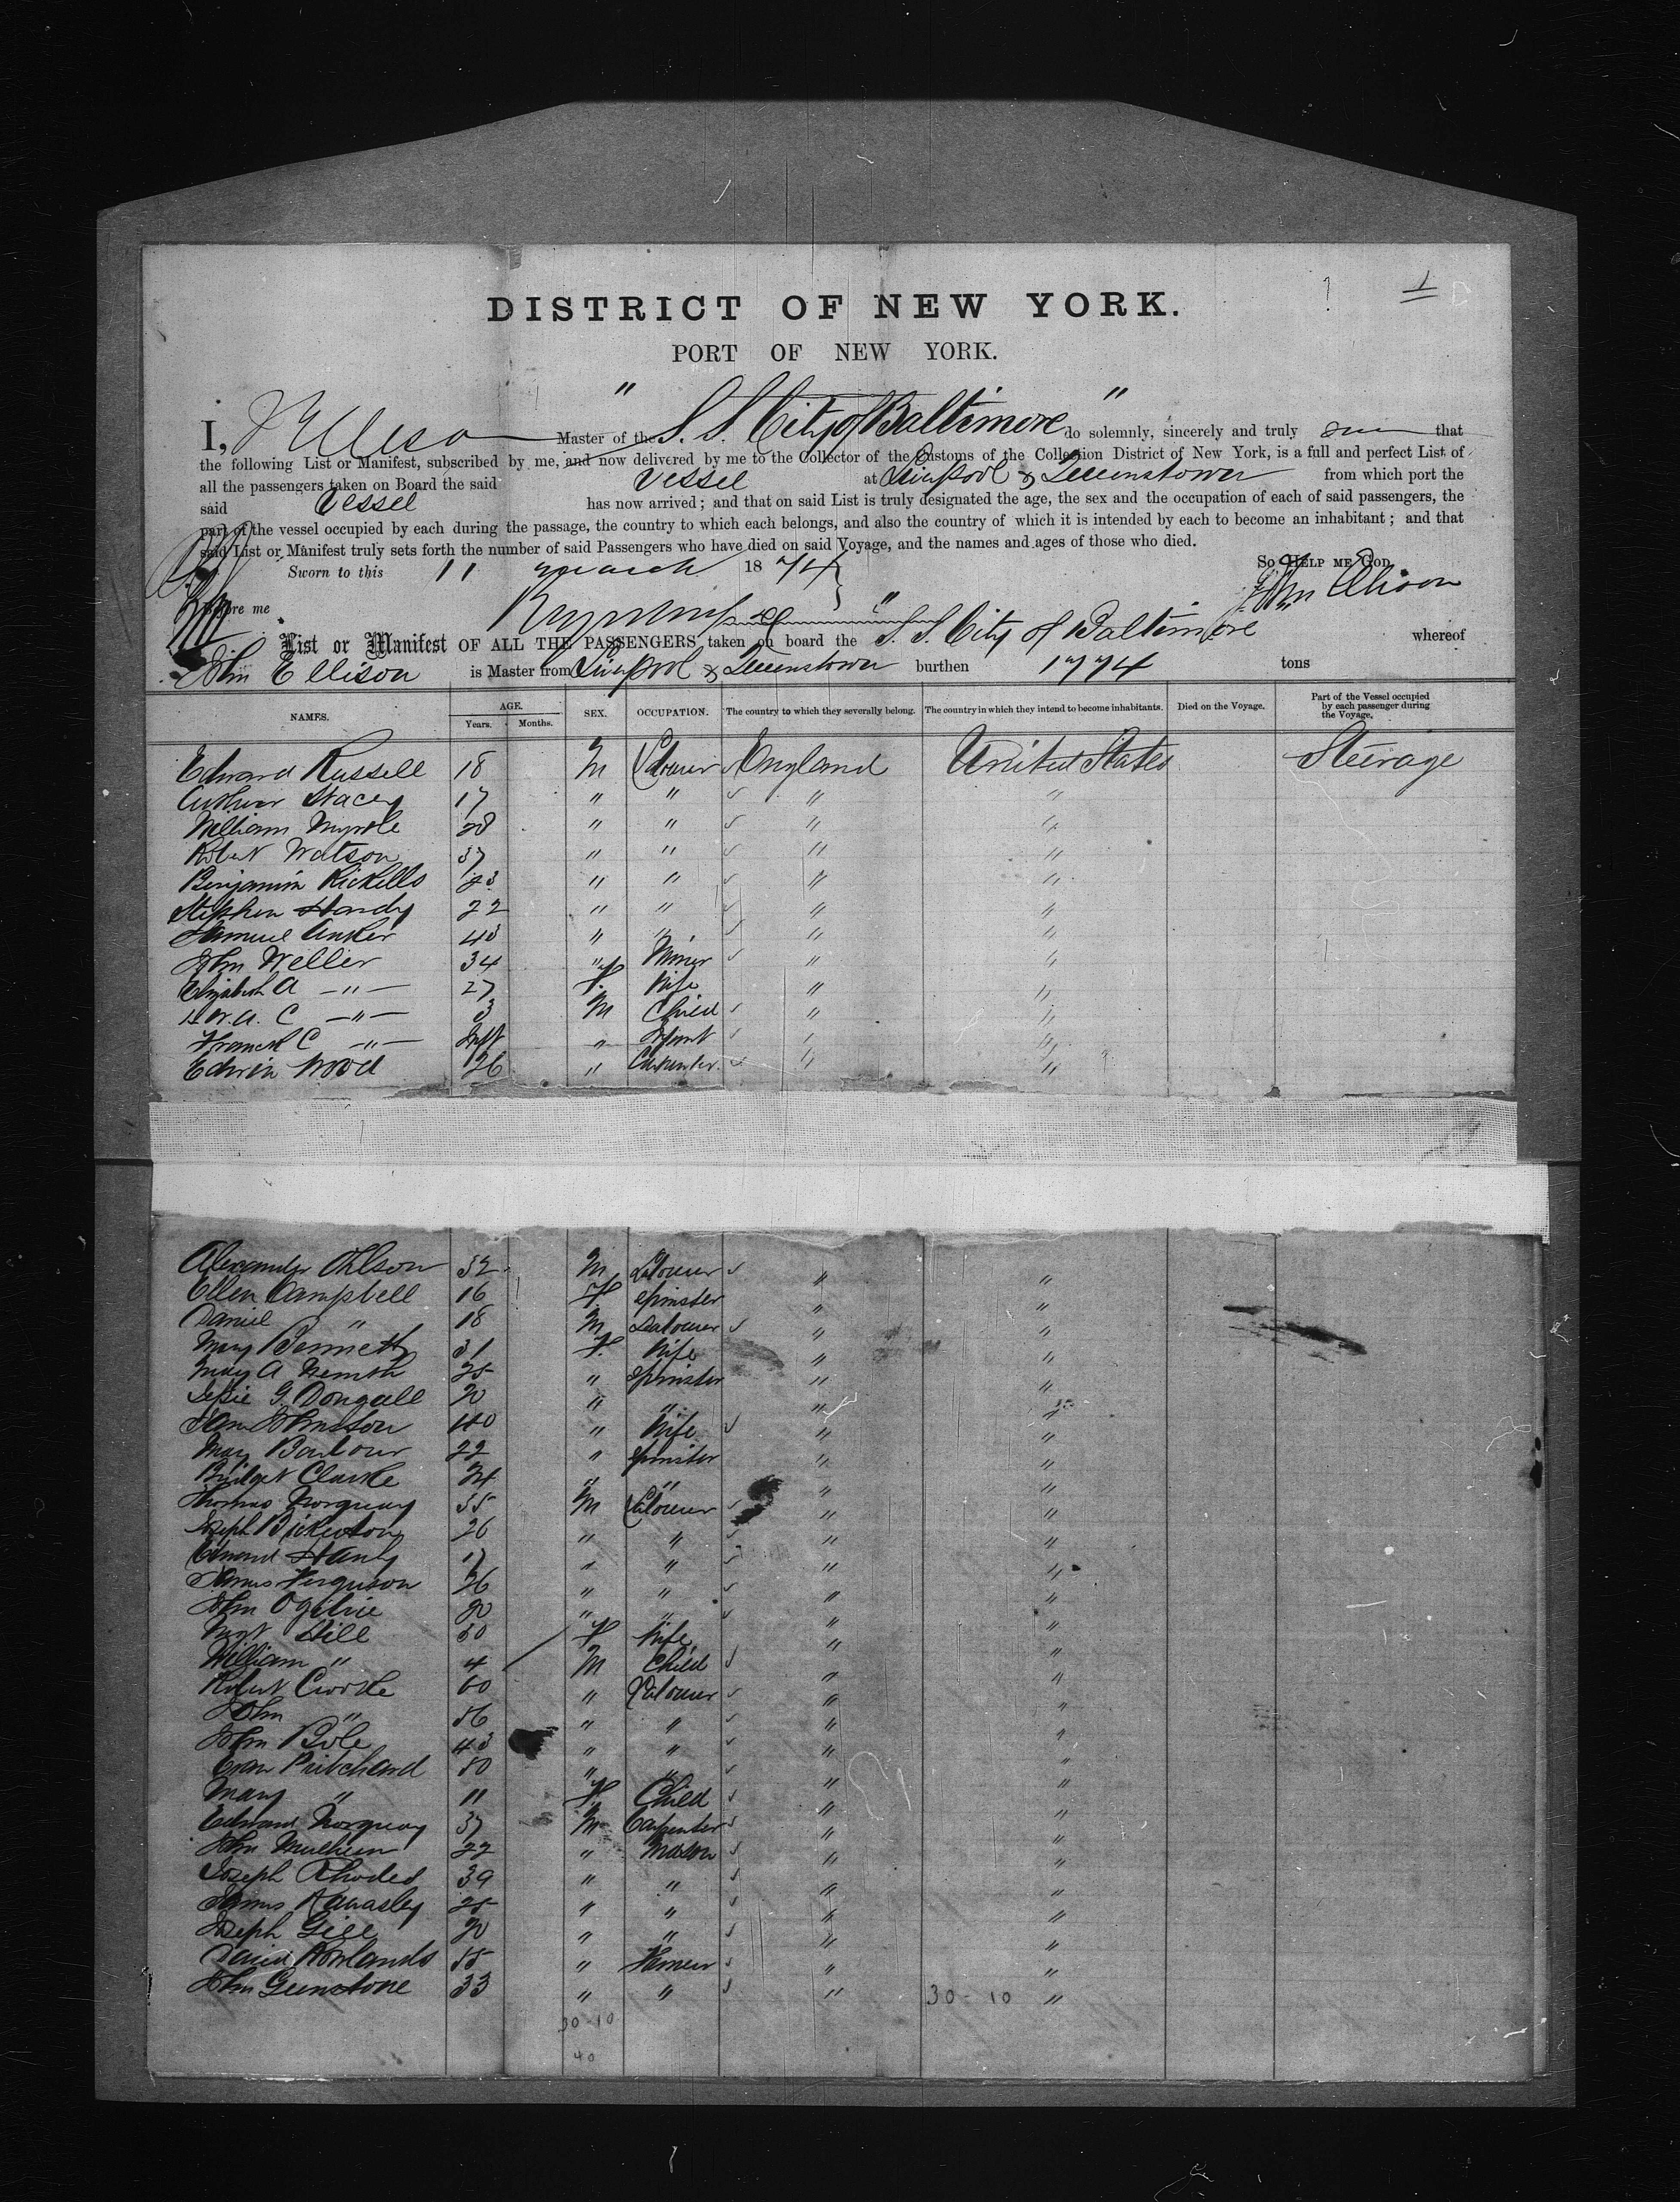 1
DISTRICT OF NEW YORK.
PORT OF NEW YORK.
" "
I, Master of the S. S. City of Baltimore do solemnly, sincerely and truly that
the following List or Manifest, subscribed by me, and now delivered by me to the Collector of the Customs of the Collection District of New York, is a full and perfect List of
all the passengers taken on Board the said Vessel at Liverpool & Queenstown from which port the
said Vessel has now arrived; and that on said List is truly designated the age, the sex and the occupation of each of said passengers, the
part of the vessel occupied by each during the passage, the country to which each belongs, and also the country of which it is intended by each to become an inhabitant; and that
said List or Manifest truly sets forth the number of said Passengers who have died on said Voyage, and the names and ages of those who died.
Sworn to this 11 march 1874 So HELP ME GOD.
Before me
List or Manifest OF ALL THE PASSENGERS taken on board the S. S. City of Baltimore whereof
John Ellison is Master from Liverpool & Queenstown burthen 1774 tons
NAMES. AGE. Years. Months. SEX. OCCUPATION. The country to which they severally belong. The country in which they intend to become inhabitants. Died on the Voyage. Part of the Vessel occupied by each passenger during the Voyage.
Edward Russell 18 M Labourer England United States Steerage
Arthur Stacey 17 " " " "
William 28 " " " "
Robert Watson 37 " " " "
Benjamin Ricketts 23 " " " "
Stephen Hardy 22 " " " "
Samuel Anker 43 " " " "
John Weller 34 " Miner " "
Elizabeth A —"— 27 F. Wife " "
H. W. A. C —"— 3 M Child " "
C —"— Inft " Infant " "
Edwin Wood 26 " Carpenter " "
Alexander Ohlson 32 M Labourer " "
Ellen Campbell 16 F Spinster " "
Daniel " 18 M Labourer " "
Mary Bennett 31 F. Wife " "
Mary A 25 " Spinster " "
Jessie G. Dougall 20 " " " "
Jane Johnston 40 " Wife " "
Mary Barbour 22 " Spinster " "
Bridget Clarke 24 " " " "
Thomas Norquay 55 M Labourer " "
Joseph Bickerton 26 " " " "
Edward 17 " " " "
James Ferguson 26 " " " "
John Ogilvie 20 " " " "
Hill 30 F Wife " "
William " 4 M Child " "
Robert 60 " Labourer " "
John " 56 " " " "
John Bole 43 " " " "
Evan Pritchard 50 " " " "
Mary " 11 F. Child " "
Edward Norquay 37 M Carpenter " "
John 22 " Mason " "
Joseph Rhodes 39 " " " "
James 25 " " " "
Joseph Gill 20 " " " "
David Rowlands 55 " Farmer " "
John 33 " " " 30-10 "
30-10
40